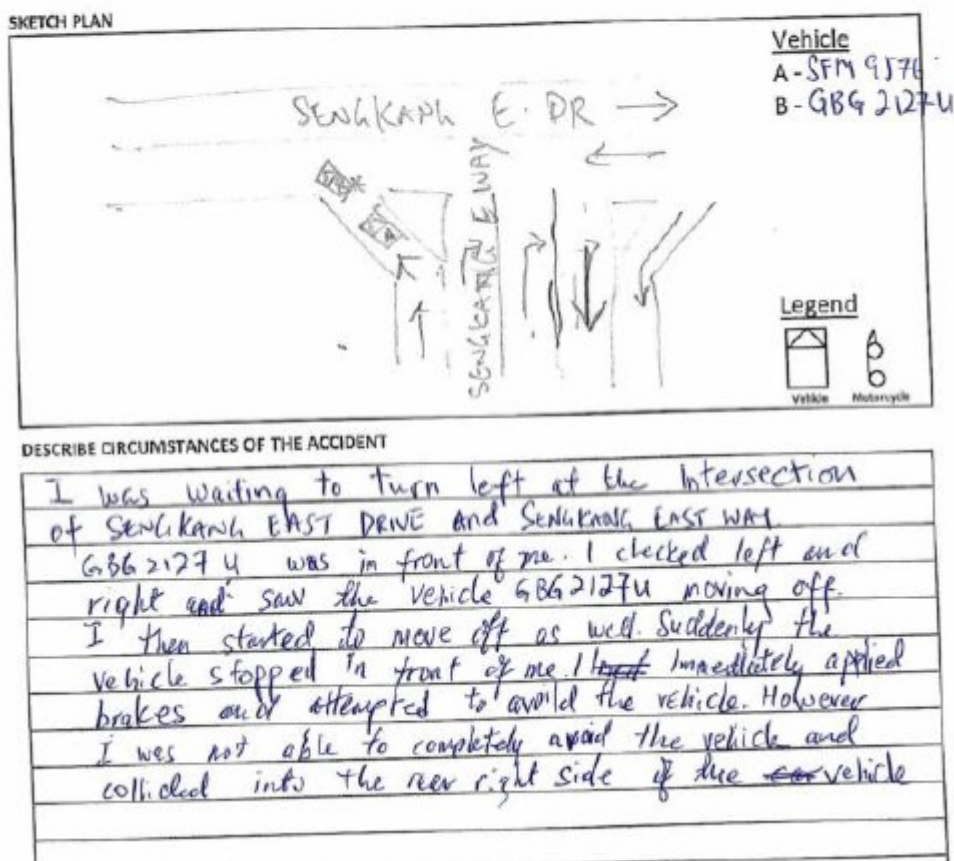 SKETCH PLAN
Vehicle
A - SFM 9576
B - GBG 2127U
SENGKANG E. DR
SENGKANG E WAY
Legend
Vehicle
Motorcycle
DESCRIBE CIRCUMSTANCES OF THE ACCIDENT
I was waiting to turn left at the Intersection
of SENGKANG EAST DRIVE And SENGKANG EAST WAY
GBG 2127 U was in front of me. I checked left and
right and saw the vehicle GBG2127U moving off.
I then started to move off as well. Suddenly the
vehicle stopped in front of me. I Immediately applied
brakes and attempted to avoid the vehicle. However
I was not able to completely avoid the vehicle and
collided into the rear right side of the vehicle